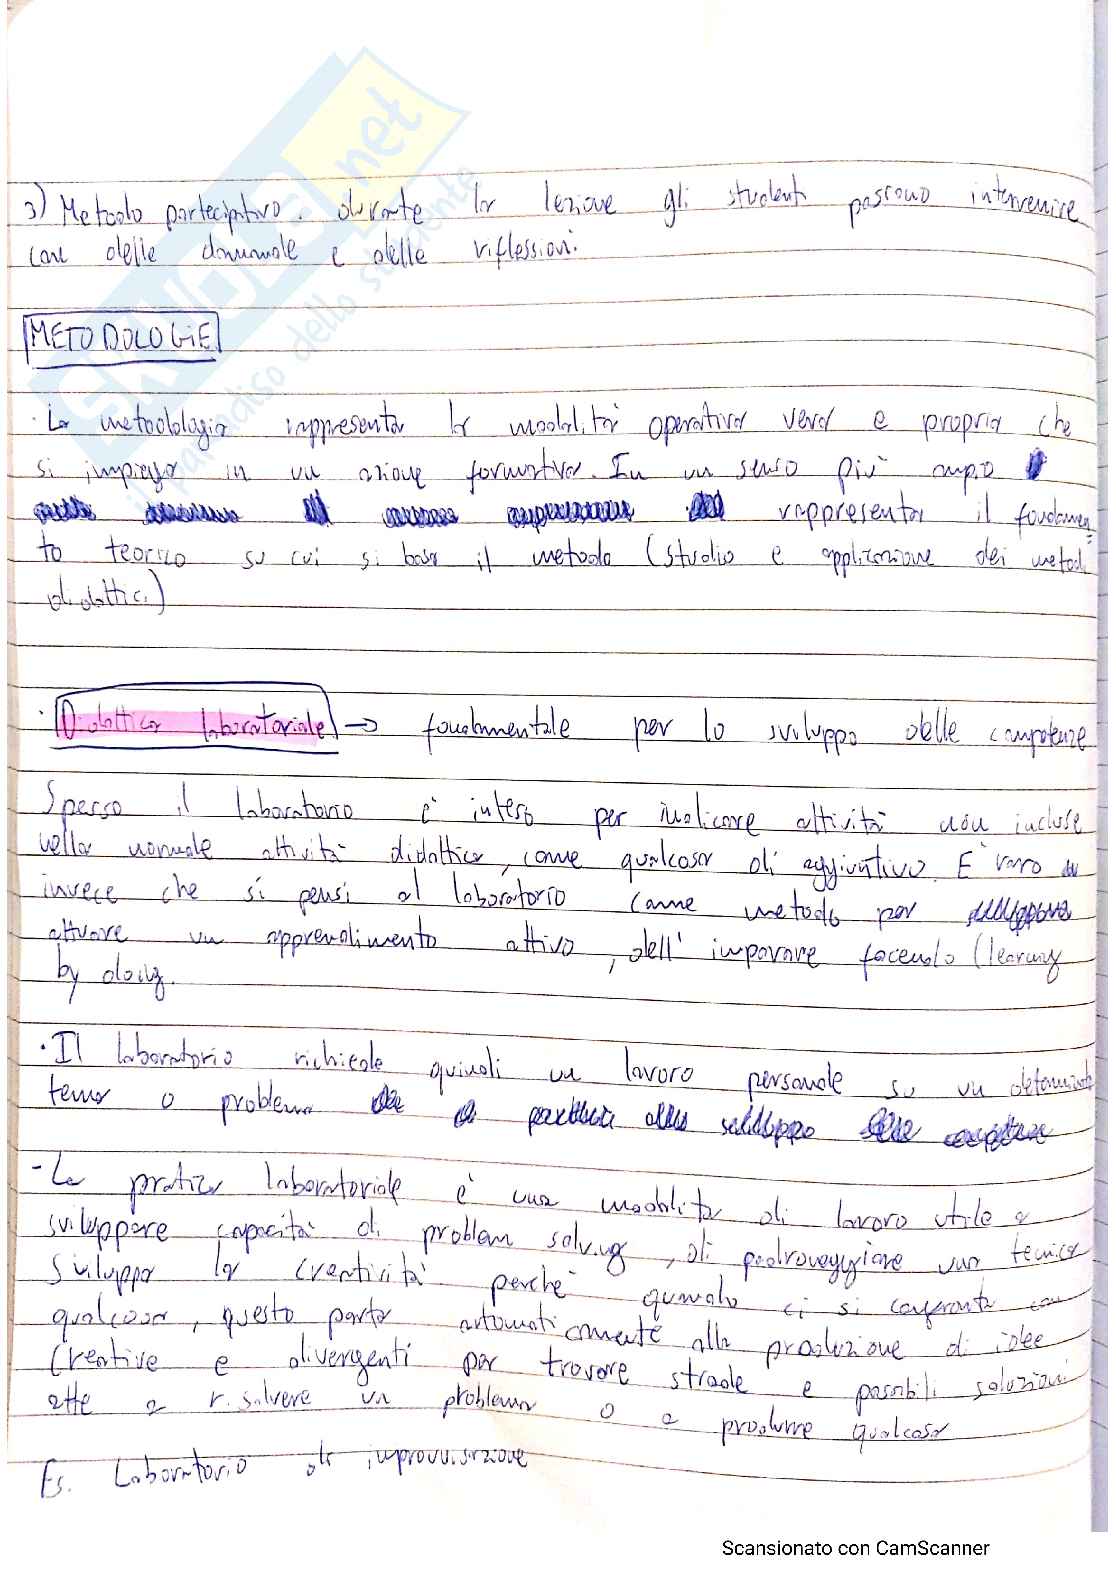 3) Metodo partecipativo. durante la lezione gli studenti possono intervenire
con delle domande e delle riflessioni.
METODOLOGIE
· La metodologia rappresenta la modalità operativa vera e propria che
si impiega in un azione formativa. In un senso più ampio
rappresenta il fondamen
to teorico su cui si basa il metodo (studio e applicazione dei metodi
didattici)
· Didattica laboratoriale → fondamentale per lo sviluppo delle competenze
Spesso il laboratorio è inteso per indicare attività non incluse
nella normale attività didattica, come qualcosa di aggiuntivo. È raro
invece che si pensi al laboratorio come metodo per
attuare un apprendimento attivo, dell'imparare facendo (learning
by doing.
· Il laboratorio richiede quindi un lavoro personale su un determinato
tema o problema
- La pratica laboratoriale è una modalità di lavoro utile a
sviluppare capacità di problem solving, di padroneggiare una tecnica
Sviluppa la creatività perché quando ci si confronta con
qualcosa, questo porta automaticamente alla produzione di idee
creative e divergenti per trovare strade e possibili soluzioni
atte a risolvere un problema o a produrre qualcosa
Es. Laboratorio di improvvisazione
SKUOLA.net
il paradiso dello studente
Scansionato con CamScanner